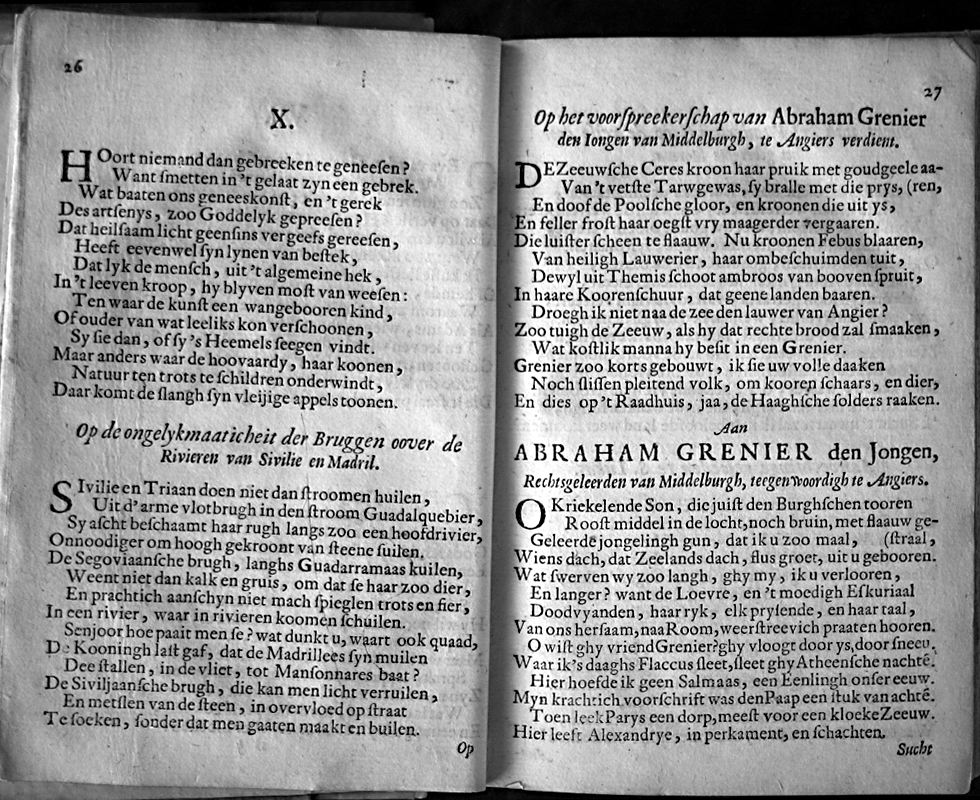 26
X.
HOort niemand dan gebreeken te geneeſen?
Want ſmetten in 't gelaat zyn een gebrek.
Wat baaten ons geneeskonſt, en 't gerek
Des artſenys, zoo Goddelyk gepreeſen?
Dat heilſaam licht geenſins vergeefs gereeſen,
Heeft eevenwel ſyn lynen van beſtek,
Dat lyk de menſch, uit 't algemeine hek,
In 't leeven kroop, hy blyven moſt van weeſen:
Ten waar de kunſt een wangebooren kind,
Of ouder van wat leeliks kon verſchoonen,
Sy ſie dan, of ſy 's Heemels ſeegen vindt.
Maar anders waar de hoovaardy, haar koonen,
Natuur ten trots te ſchildren onderwindt,
Daar komt de ſlangh ſyn vleijige appels toonen.
Op de ongelykmaaticheit der Bruggen oover de
Rivieren van Sivilie en Madril.
SIvilie en Triaan doen niet dan ſtroomen huilen,
Uit d'arme vlotbrugh in den ſtroom Guadalquebier,
Sy aſcht beſchaamt haar rugh langs zoo een hoofdrivier,
Onnoodiger om hoogh gekroont van ſteene ſuilen.
De Segoviaanſche brugh, langhs Guadarramaas kuilen,
Weent niet dan kalk en gruis, om dat ſe haar zoo dier,
En prachtich aanſchyn niet mach ſpieglen trots en fier,
In een rivier, waar in rivieren koomen ſchuilen.
Senjoor hoe paait men ſe? wat dunkt u, waart ook quaad,
De Kooningh laſt gaf, dat de Madrillees ſyn muilen
Dee ſtallen, in de vliet, tot Manſonnares baat?
De Siviljaanſche brugh, die kan men licht verruilen,
En metſlen van de ſteen, in overvloed op ſtraat
Te ſoeken, ſonder dat men gaaten maakt en builen.
Op
27
Op het voorſpreekerſchap van Abraham Grenier
den Jongen van Middelburgh, te Angiers verdient.
DE Zeeuwſche Ceres kroon haar pruik met goudgeele aa-
Van 't vetſte Tarwgewas, ſy bralle met die prys, (ren,
En doof de Poolſche gloor, en kroonen die uit ys,
En feller froſt haar oegſt vry maagerder vergaaren.
Die luiſter ſcheen te flaauw. Nu kroonen Febus blaaren,
Van heiligh Lauwerier, haar ombeſchuimden tuit,
Dewyl uit Themis ſchoot ambroos van booven ſpruit,
In haare Koorenſchuur, dat geene landen baaren.
Droegh ik niet naa de zee den lauwer van Angier?
Zoo tuigh de Zeeuw, als hy dat rechte brood zal ſmaaken,
Wat koſtlik manna hy beſit in een Grenier.
Grenier zoo korts gebouwt, ik ſie uw volle daaken
Noch ſliſſen pleitend volk, om kooren ſchaars, en dier,
En dies op 't Raadhuis, jaa, de Haaghſche ſolders raaken.
Aan
ABRAHAM GRENIER den Jongen,
Rechtsgeleerden van Middelburgh, teegenwoordigh te Angiers.
O Kriekelende Son, die juiſt den Burghſchen tooren
Rooſt middel in de locht, noch bruin, met flaauw ge-
Geleerde jongelingh gun, dat ik u zoo maal, (ſtraal,
Wiens dach, dat Zeelands dach, flus groet, uit u gebooren.
Wat ſwerven wy zoo langh, ghy my, ik u verlooren,
En langer? want de Loevre, en 't moedigh Eſkuriaal
Doodvyanden, haar ryk, elk pryſende, en haar taal,
Van ons herſaam, naa Room, weerſtreevich praaten hooren.
O wiſt ghy vriend Grenier? ghy vloogt door ys, door ſneeu.
Waar ik's daaghs Flaccus ſleet, ſleet ghy Atheenſche nachtē.
Hier hoefde ik geen Salmaas, een Eenlingh onſer eeuw.
Myn krachtich voorſchrift was den Paap een ſtuk van achtē.
Toen leek Parys een dorp, meeſt voor een kloeke Zeeuw.
Hier leeft Alexandrye, in perkament, en ſchachten.
Sucht